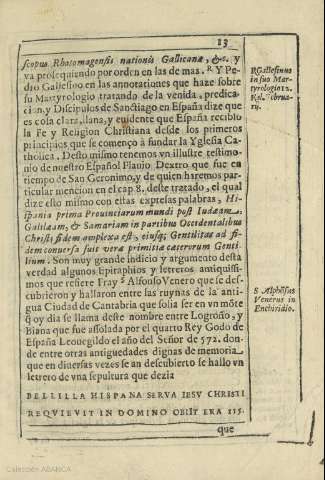 13
scopus Rhotomagensis nationis Gallicanæ, &c. y
va prosequiendo por orden en las de mas. R Y Pe-
dro Galesino en las annotationes que haze sobre
su Martyrologio tratando de la venida, predica-
cion, y Discipulos de Sanctiago en España dize que
es cosa clara, llana, y euidente que España recibio
la Fe y Religion Christiana desde los primeros
principios que se començo à fundar la Yglesia Ca-
tholica. Desto mismo tenemos vn illustre testimo-
nio de nuestro Español Flauio Dextro, que fue en
tiempo de San Geronimo, y de quien haremos par-
ticular mencion en el cap. 8. deste tratado, el qual
dize esto mismo con estas expresas palabras, Hi-
spania prima Prouinciarum mundi post Iudæam,
Galilæam, & Samariam in partibus Occidentalibus
Christi fidem amplexa est, eiusq; Gentilitas ad fi-
dem conuersa fuit vere primitiæ cæterorum Genti-
lium. Son muy grande indicio y argumento desta
verdad algunos Epitaphios y letreros antiquissi-
mos que refiere Fray S Alfonso Venero que se des-
cubrieron y hallaron entre las ruynas de la anti-
gua Ciudad de Cantabria que solia ser en vn mõte
q̃ oy dia se llama deste nombre entre Logroño, y
Biana que fue assolada por el quarto Rey Godo de
España Leouegildo el año del Señor de 572. don-
de entre otras antiguedades dignas de memoria
que en diuersas vezes se an descubierto se hallo vn
letrero de vna sepultura que dezia
BELLILLA HISPANA SERVA IESV CHRISTI
REQVIEVIT IN DOMINO OBIIT ERA 115.
que
R Gallesinus
in suo Mar-
tyrologio 12.
Kal. Februa-
rij.
S Alphõsus
Venerus in
Enchiridio.
Colección ABANCA